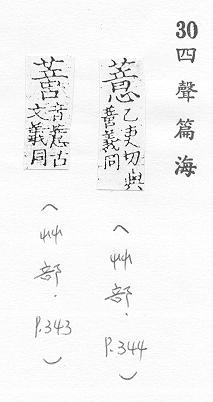 30四聲篇海
薏
乙吏切與
義同
(艸部.P.344)
音薏古
文義同
(艸部.P.343)